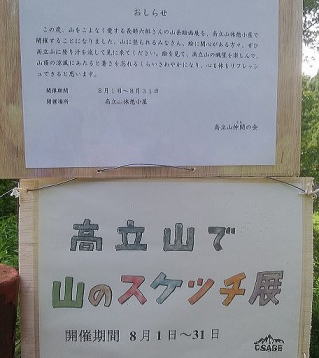 おしらせ
この度、山をこよなく愛する長野六郎さんの山岳絵画展を、高立山休憩小屋で
開催することになりました。山に登られるみなさん、絵に関心がある方々、ぜひ
高立山に登り汗を流して見に来てください。絵を見て、高立山の眺望を楽しんで、
山頂の涼風にあたると暑さを忘れるくらいさわやかになり、心も体もリフレッシュ
できると思います。
開催期間 8月1日～8月31日
開催場所 高立山休憩小屋
高立山仲間の会
高立山で
山のスケッチ展
開催期間 8月1日～31日